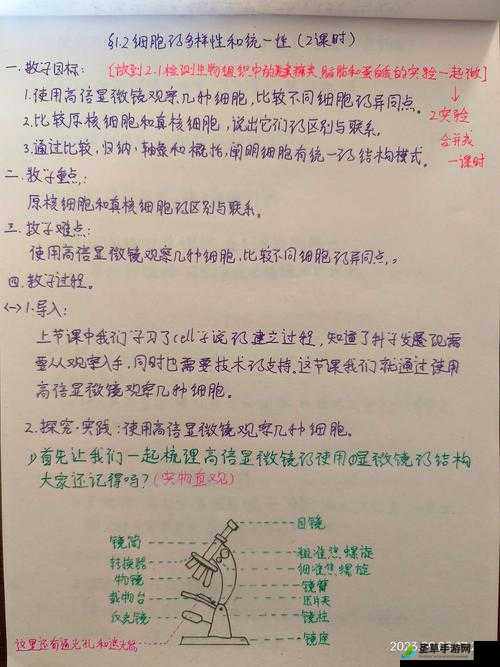 §1.2 细胞的多样性和统一性（2课时）
一. 教学目标：[放到2.1检测生物组织中的还原糖、脂肪和蛋白质的实验一起做]
1.使用高倍显微镜观察几种细胞，比较不同细胞的异同点。
2实验
2.比较原核细胞和真核细胞，说出它们的区别与联系。
合并成
3.通过比较，归纳，抽象和概括，阐明细胞有统一的结构模式。
一课时
二. 教学重点：
原核细胞和真核细胞的区别与联系。
三. 教学难点：
使用高倍显微镜观察几种细胞，比较不同细胞的异同点。
四. 教学过程。
(一) 1.导入：
上节课中我们学习了cell学说的建立过程，知道了科学发展需
要从观察入手，同时也需要技术的支持。这节课我们就通过使用
高倍显微镜观察几种细胞。
2.探究·实践：使用高倍显微镜观察几种细胞。
首先让我们一起梳理高倍显微镜的使用①显微镜的结构
大家还记得吗？(实物直观)
目镜
镜筒
粗准焦螺旋
转换器
细准焦螺旋
物镜
镜臂
载物台
压片夹
反光镜
镜柱
镜座
这里还有通光孔和遮光器
2023
圣草手游网